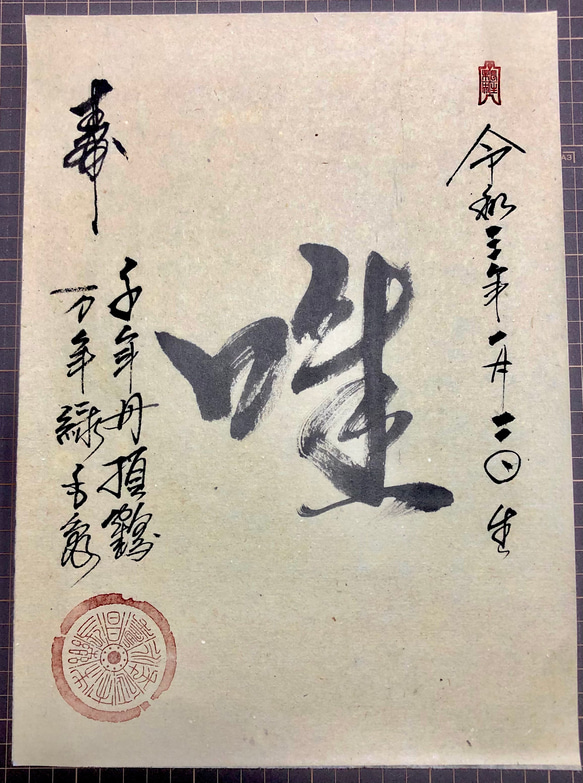 令和三年一月二日生
唯
寿
千年丹頂鶴
万年緑毛亀